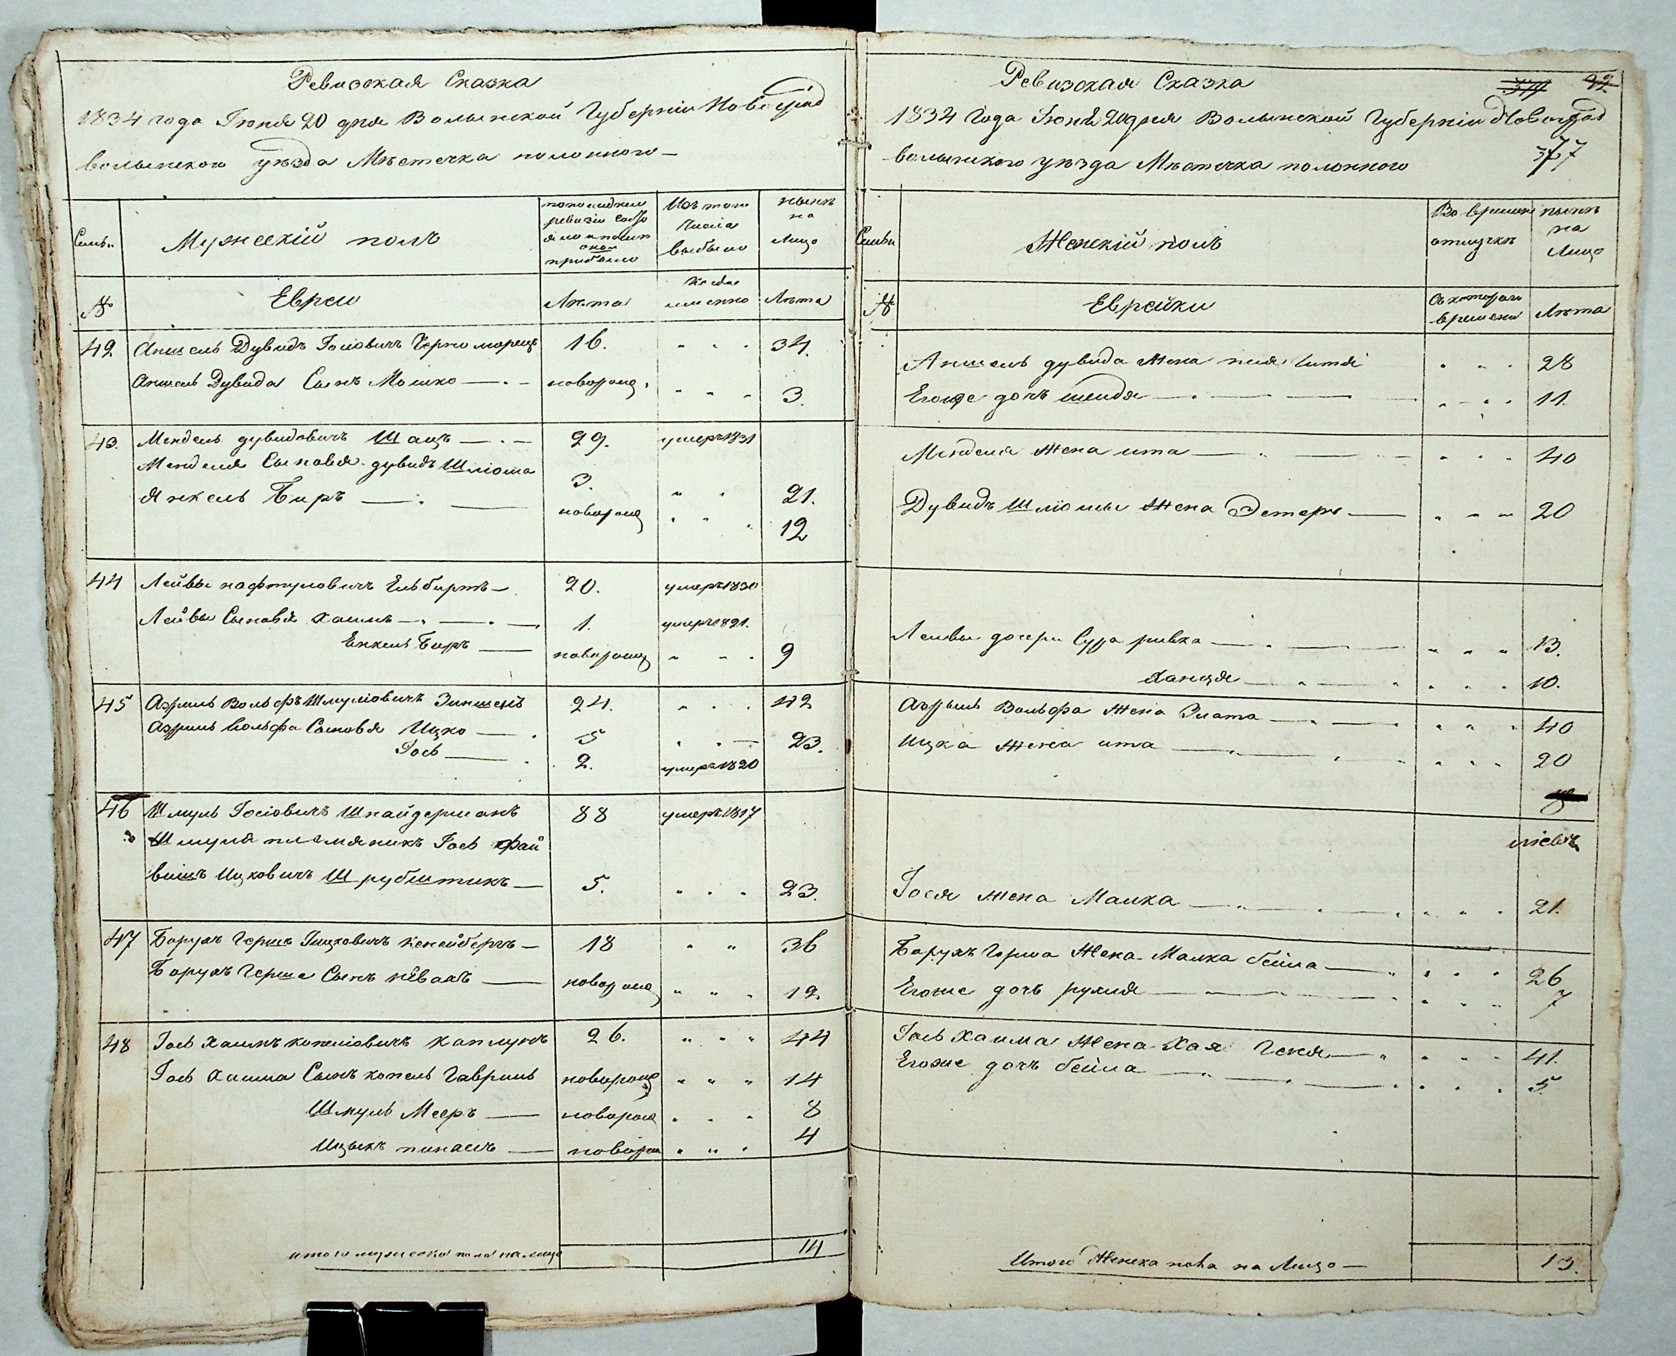 Ревизская Сказка
1834 года Июня 20 дня Волынской Губернии Новоград
волынского уезда Местечка полонного
Семьи
Мужескій полъ
по последней ревизіи состояло и после оной прибыло
Изъ того числа выбыло
ныне на лицо
№
Евреи
Лета
когда именно
Лета
42 Аншель Дувидъ Іосіовичъ Черноморецъ 16. 34.
Аншель Дувида Сынъ Мошко новорожд. 3.
43. Мендель дувидовичъ Шацъ 29. умеръ 1831
Менделя Сыновья дувидъ Шліома 3. 21.
Янкель Беръ новорожд 12
44 Лейвы нафтуловичъ 20. умеръ 1830
Лейвы Сыновья Хаимъ 1. умеръ 1821.
Енкель Беръ новорожд 9
45 Азриль Вольфъ Шмуліовичъ 24. 42
Азриль Вольфа Сыновья Ицко 5 23.
Іось 2. умеръ 1820
46 Шмуль Іосіовичъ Шнайдерманъ 88 умеръ 1817
Шмуля племяникъ Іось Фай
вишъ Ицковичъ Шрубштикъ 5. 23.
47 Борухъ Гершь Іицковичъ 18 36
Борухъ Герша Сынъ новорожд 12.
48 Іось Хаимъ копеліовичъ каплунъ 26. 44
Іось Хаима Сынъ копель Гавриль новорожд 14
Шмуль Мееръ новорожд 8
Ицыкъ пинхасъ новорож 4
итого мужеска пола на лицо 14
Ревизская Сказка
1834 Года Іюня 20 дня Волынской Губерніи Новоград
волынского уезда Местечка полонного
377
Семьи
Женскій полъ
Во временной отлучке
ныне на Лицо
№
Еврейки
Съ котораго времени
Лета
Аншель дувида Жена 28
Егожъ дочъ шейндя 11.
Менделя Жена ита 40
Дувидъ Шліомы Жена Эстеръ 20
Лейвы дочери Сура ривка 13.
Ханця 10.
Азриль Вольфа Жена Злата 40
Ицка Жена ита 20
Іося Жена Малка 21.
Борухъ Герша Жена Малка бейла 26
Егоже дочъ рухля 7
Іось Хаима Жена Хая Геня 41.
Егоже дочъ бейла 5.
Итого Женска пола на Лицо 13.